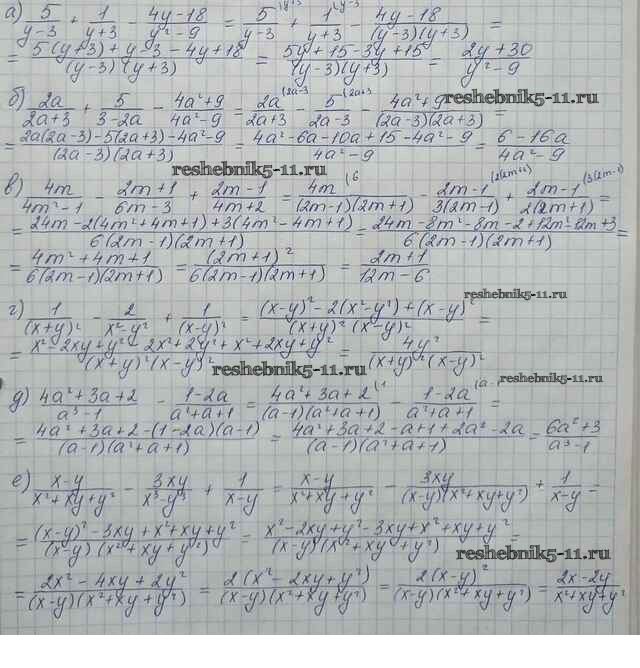 а) 5/(y-3) + 1/(y+3) - (4y-18)/(y²-9) = 5/(y-3) (y+3 + 1/(y+3) (y-3 - (4y-18)/((y-3)(y+3)) =
= (5(y+3)+y-3-4y+18)/((y-3)(y+3)) = (5y+15-3y+15)/((y-3)(y+3)) = (2y+30)/(y²-9)
б) 2a/(2a+3) + 5/(3-2a) - (4a²+9)/(4a²-9) = 2a/(2a+3) (2a-3 - 5/(2a-3) (2a+3 - (4a²+9)/((2a-3)(2a+3)) =
= (2a(2a-3)-5(2a+3)-4a²-9)/((2a-3)(2a+3)) = (4a²-6a-10a+15-4a²-9)/(4a²-9) = (6-16a)/(4a²-9)
reshebnik5-11.ru
в) 4m/(4m²-1) - (2m+1)/(6m-3) + (2m-1)/(4m+2) = 4m/((2m-1)(2m+1)) (6 - (2m-1)/(3(2m-1)) (2(2m+1) + (2m-1)/(2(2m+1)) (3(2m-1) =
= (24m-2(4m²+4m+1)+3(4m²-4m+1))/(6(2m-1)(2m+1)) = (24m-8m²-8m-2+12m²-12m+3)/(6(2m-1)(2m+1)) =
= (4m²+4m+1)/(6(2m-1)(2m+1)) = (2m+1)²/(6(2m-1)(2m+1)) = (2m+1)/(12m-6)
reshebnik5-11.ru
г) 1/(x+y)² - 2/(x²-y²) + 1/(x-y)² = ((x-y)²-2(x²-y²)+(x-y)²)/((x+y)²(x-y)²) =
= (x²-2xy+y²-2x²+2y²+x²+2xy+y²)/((x+y)²(x-y)²) = 4y²/((x+y)²(x-y)²)
reshebnik5-11.ru
reshebnik5-11.ru
д) (4a²+3a+2)/(a³-1) - (1-2a)/(a²+a+1) = (4a²+3a+2)/((a-1)(a²+a+1)) (1 - (1-2a)/(a²+a+1) (a- =
= (4a²+3a+2-(1-2a)(a-1))/((a-1)(a²+a+1)) = (4a²+3a+2-a+1+2a²-2a)/((a-1)(a²+a+1)) = (6a²+3)/(a³-1)
е) (x-y)/(x²+xy+y²) - 3xy/(x³-y³) + 1/(x-y) = (x-y)/(x²+xy+y²) - 3xy/((x-y)(x²+xy+y²)) + 1/(x-y) =
= ((x-y)²-3xy+x²+xy+y²)/((x-y)(x²+xy+y²)) = (x²-2xy+y²-3xy+x²+xy+y²)/((x-y)(x²+xy+y²)) =
reshebnik5-11.ru
= (2x²-4xy+2y²)/((x-y)(x²+xy+y²)) = 2(x²-2xy+y²)/((x-y)(x²+xy+y²)) = 2(x-y)²/((x-y)(x²+xy+y²)) = (2x-2y)/(x²+xy+y²)
reshebnik5-11.ru